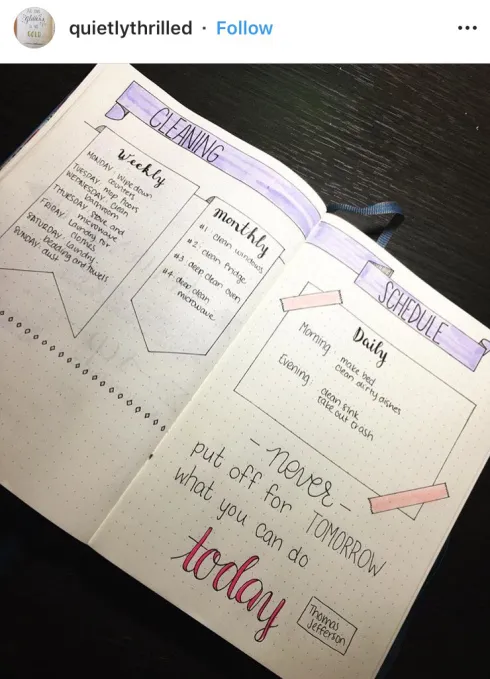 quietlythrilled · Follow
CLEANING
Weekly
MONDAY: Wipe down
counters
TUESDAY: Mop floors
WEDNESDAY: Clean
bathroom
THURSDAY: Stove and
microwave
FRIDAY: Laundry for
clothes
SATURDAY: Laundry:
bedding and towels
SUNDAY: dust
Monthly
#1: clean windows
#2: clean fridge
#3: deep clean oven
#4: deep clean
microwave
SCHEDULE
Daily
Morning: make bed
clean dirty dishes
Evening: clean sink
take out trash
- never -
put off for TOMORROW
what you can do
today
Thomas
Jefferson